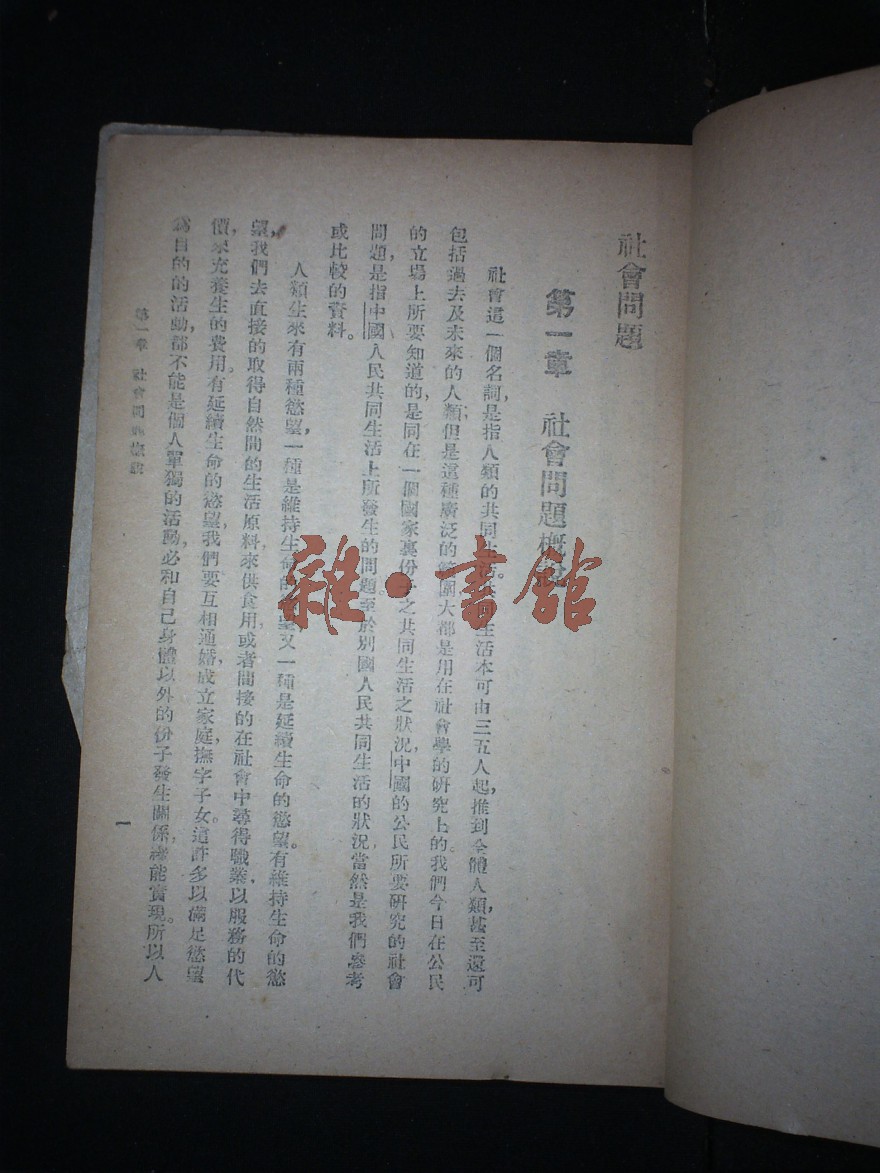 社會問題
第一章　社會問題概說
社會這一個名詞，是指人類的共同生活。共同生活本可由三五人起，推到全體人類，甚至還可
包括過去及未來的人類；但是這種廣泛的範圍大都是用在社會學的研究上的。我們今日在公民
的立場上所要知道的，是同在一個國家裏份子之共同生活之狀況，中國的公民所要研究的社會
問題，是指中國人民共同生活上所發生的問題。至於別國人民共同生活的狀況，當然是我們參考
或比較的資料。
人類生來有兩種慾望，一種是維持生命的慾望，又一種是延續生命的慾望。有維持生命的慾
望，我們去直接的取得自然間的生活原料來供食用，或者間接的在社會中尋得職業以服務的代
價來充養生的費用。有延續生命的慾望，我們要互相通婚，成立家庭，撫字子女。這許多以滿足慾望
為目的的活動，都不能是個人單獨的活動，必和自己身體以外的份子發生關係，纔能實現。所以人
第一章　社會問題概說
一
雜·書館